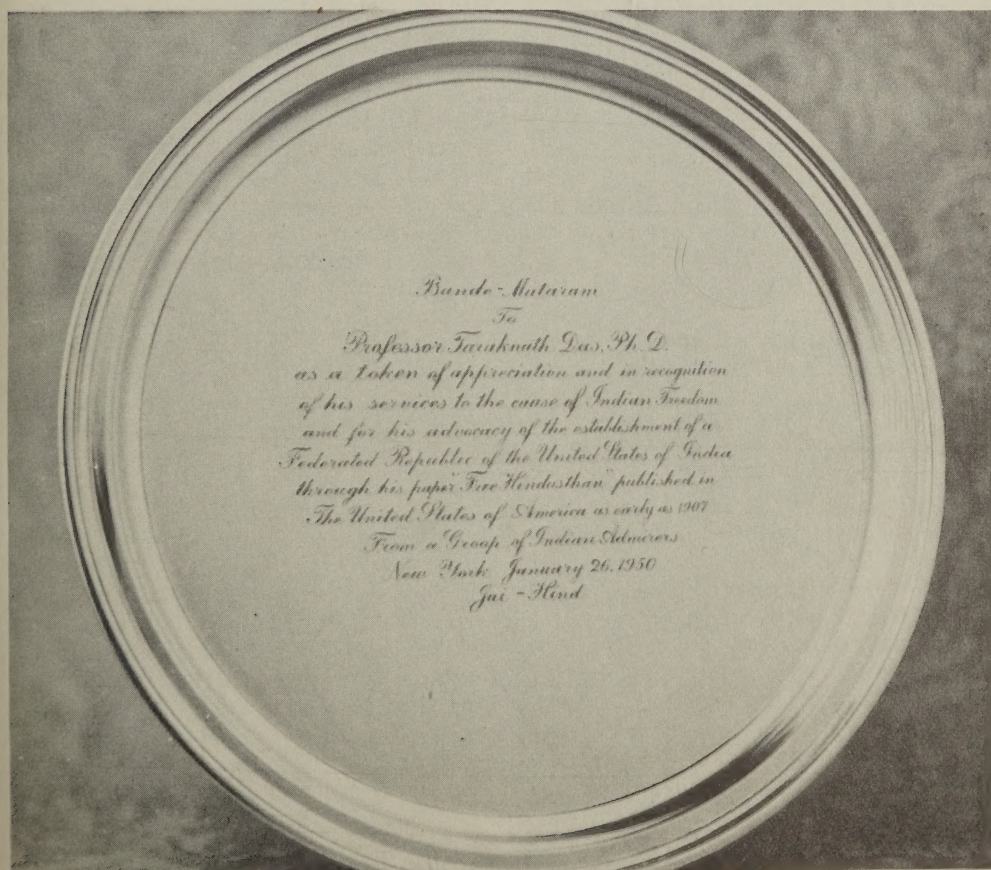 Bande-Mataram
To
Professor Taraknath Das, Ph. D.
as a token of appreciation and in recognition
of his services to the cause of Indian Freedom
and for his advocacy of the establishment of a
Federated Republic of the United States of India
through his paper "Free Hindusthan" published in
The United States of America as early as 1907
From a Group of Indian Admirers
New York January 26, 1950
Jai - Hind